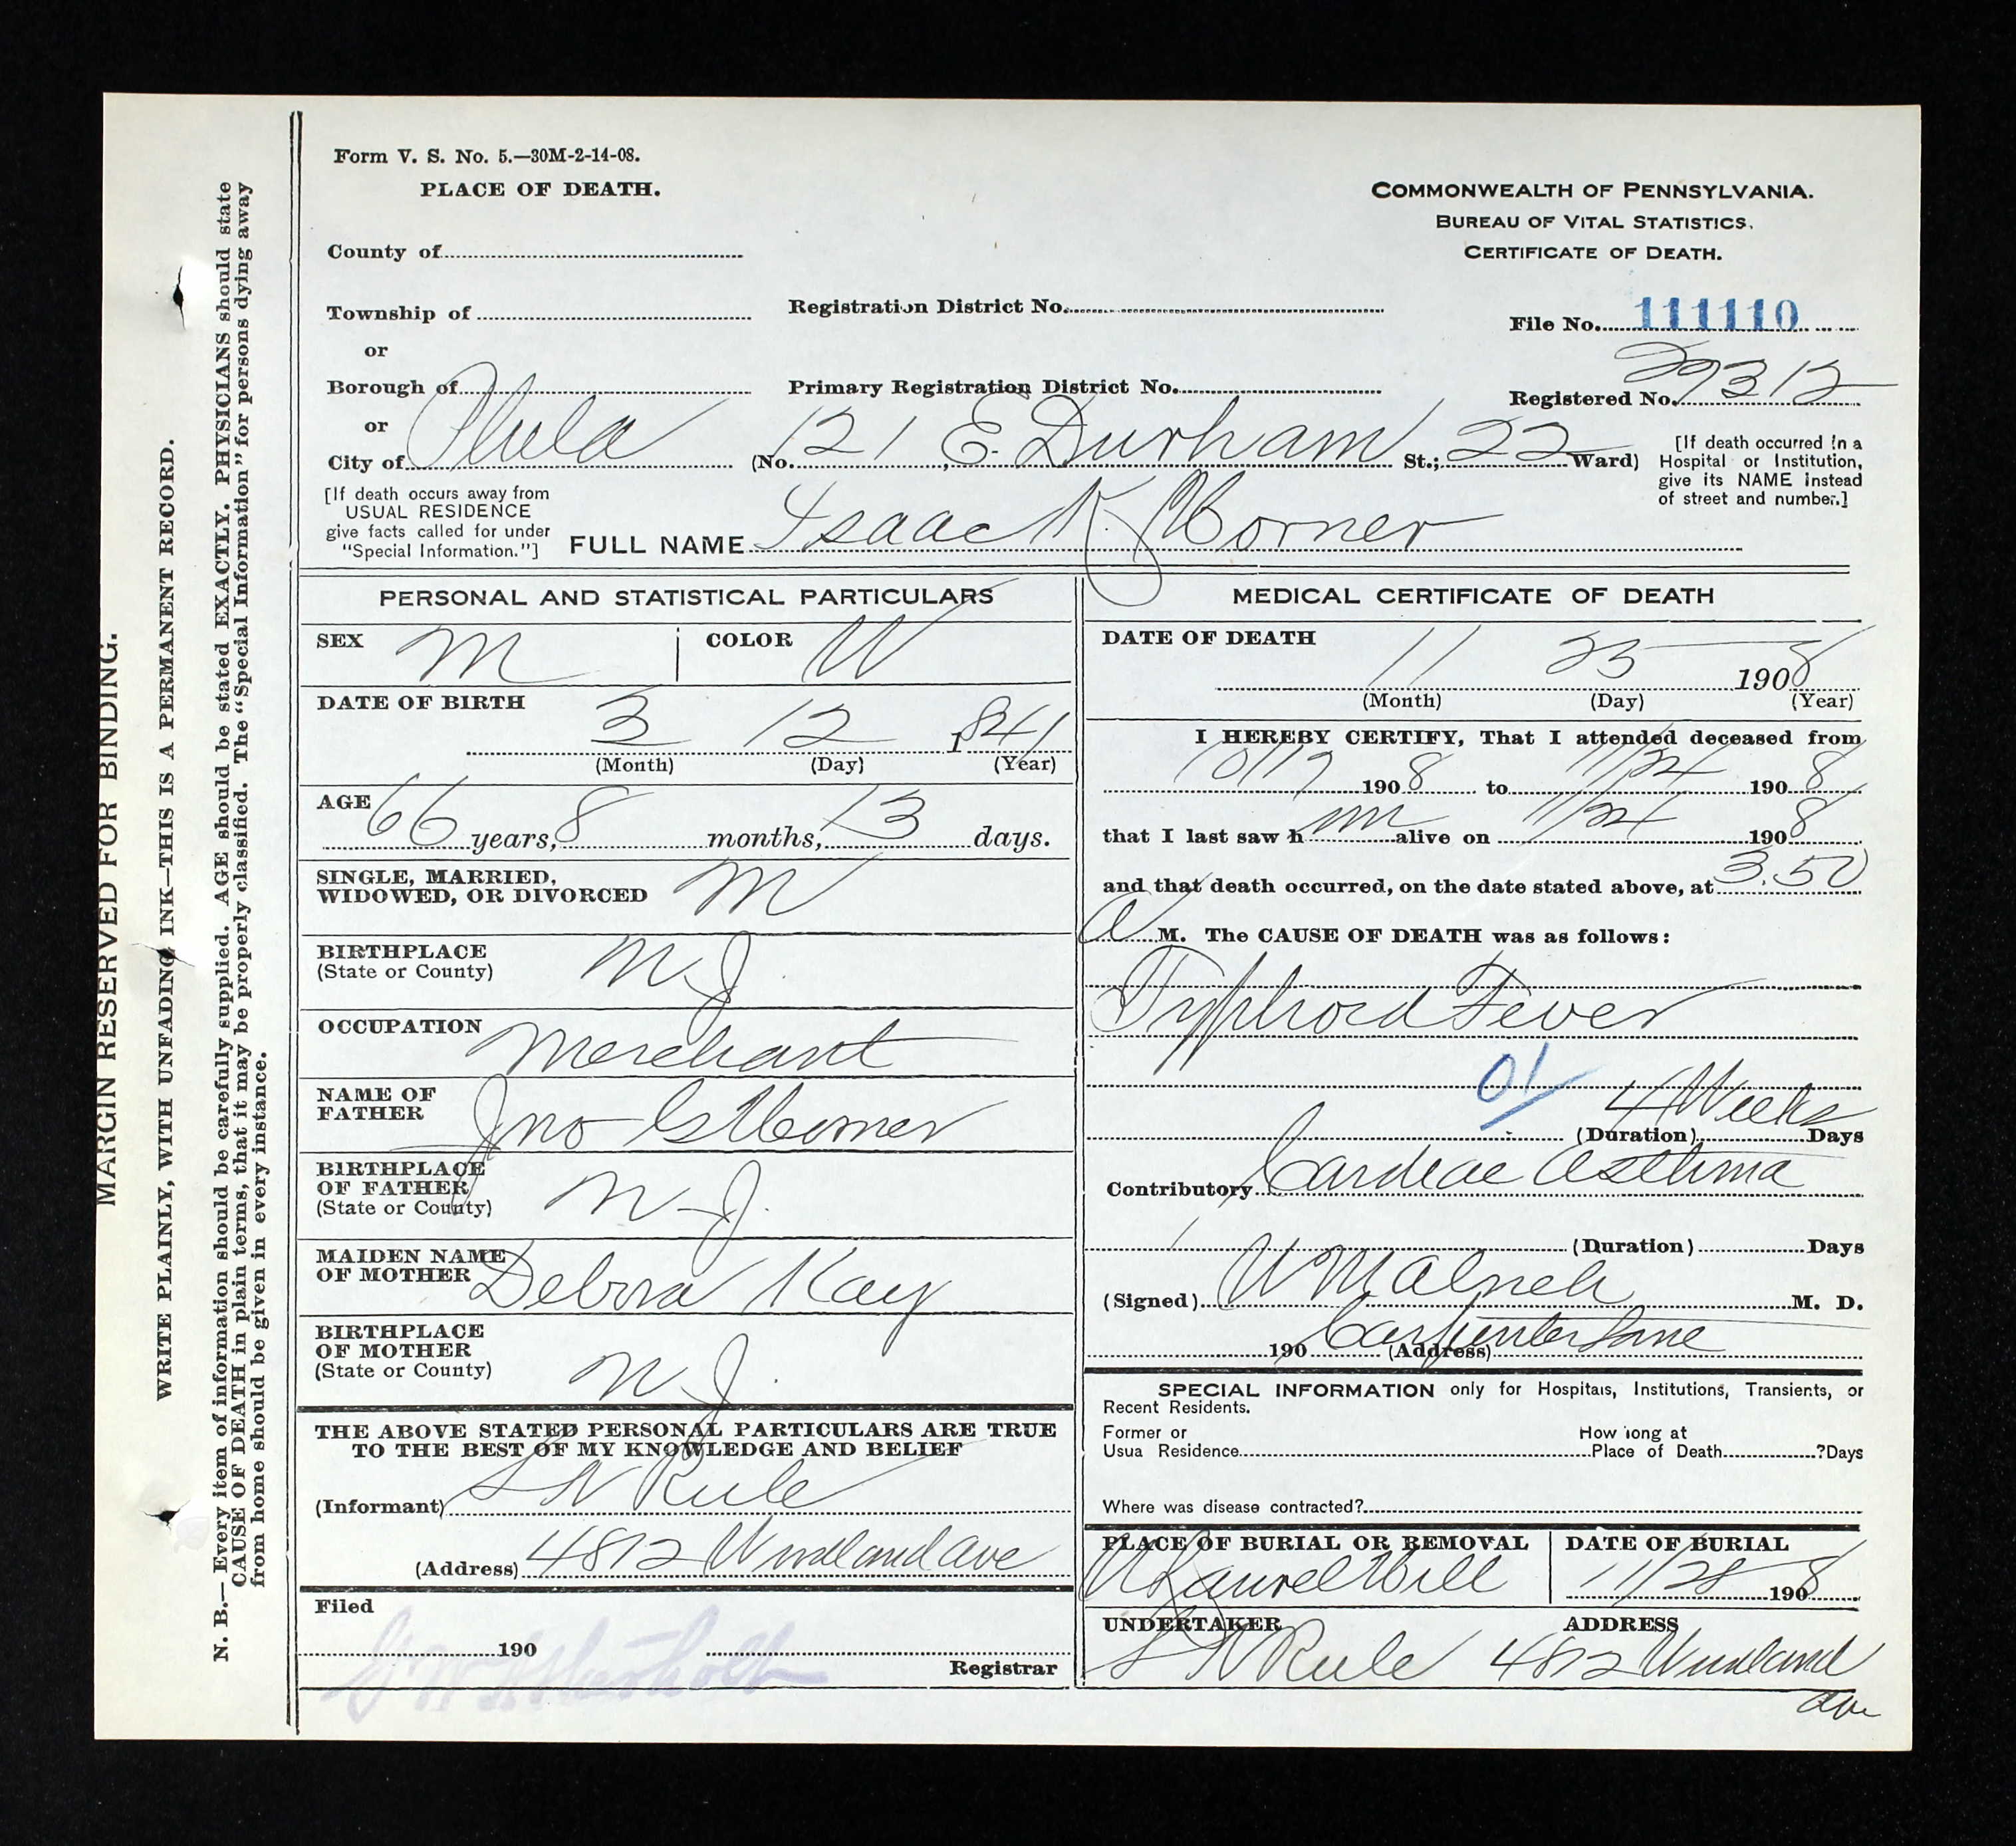 Form V. S. No. 5.—30M-2-14-08.
PLACE OF DEATH.
COMMONWEALTH OF PENNSYLVANIA.
BUREAU OF VITAL STATISTICS.
CERTIFICATE OF DEATH.
County of
Township of
Registration District No.
File No. 111110
or
Borough of
Primary Registration District No.
Registered No. 29312
or
City of Phila (No. 121 E. Durham St.; 22 Ward)
[If death occurred in a
Hospital or Institution,
give its NAME instead
of street and number.]
[If death occurs away from
USUAL RESIDENCE
give facts called for under
"Special Information."]
FULL NAME Isaac K. Horner
PERSONAL AND STATISTICAL PARTICULARS
SEX M COLOR W
DATE OF BIRTH
3 12 1841
(Month) (Day) (Year)
AGE
66 years, 8 months, 13 days.
SINGLE, MARRIED,
WIDOWED, OR DIVORCED M
BIRTHPLACE
(State or County) N J
OCCUPATION
Merchant
NAME OF
FATHER Jno G Horner
BIRTHPLACE
OF FATHER
(State or County) N J.
MAIDEN NAME
OF MOTHER Debora Kay
BIRTHPLACE
OF MOTHER
(State or County) N J.
THE ABOVE STATED PERSONAL PARTICULARS ARE TRUE
TO THE BEST OF MY KNOWLEDGE AND BELIEF
(Informant) S N Rule
(Address) 4812 Woodland Ave
Filed
190
Registrar
MEDICAL CERTIFICATE OF DEATH
DATE OF DEATH
11 25 1908
(Month) (Day) (Year)
I HEREBY CERTIFY, That I attended deceased from
10/17 1908 to 11/24 1908
that I last saw h im alive on 11/24 1908
and that death occurred, on the date stated above, at 3.50
A M. The CAUSE OF DEATH was as follows:
Typhoid Fever
01
4 Weeks
(Duration) Days
Contributory Cardiac Asthma
(Duration) Days
(Signed) M. D.
190 (Address) Carpenter Lane
SPECIAL INFORMATION only for Hospitals, Institutions, Transients, or
Recent Residents.
Former or
Usua Residence
How long at
Place of Death ?Days
Where was disease contracted?
PLACE OF BURIAL OR REMOVAL
N Laurel Hill
DATE OF BURIAL
11/28 1908
UNDERTAKER
S N Rule
ADDRESS
4812 Woodland
Ave
MARGIN RESERVED FOR BINDING.
WRITE PLAINLY, WITH UNFADING INK—THIS IS A PERMANENT RECORD.
N. B.—Every item of information should be carefully supplied. AGE should be stated EXACTLY. PHYSICIANS should state
CAUSE OF DEATH in plain terms, that it may be properly classified. The "Special Information" for persons dying away
from home should be given in every instance.